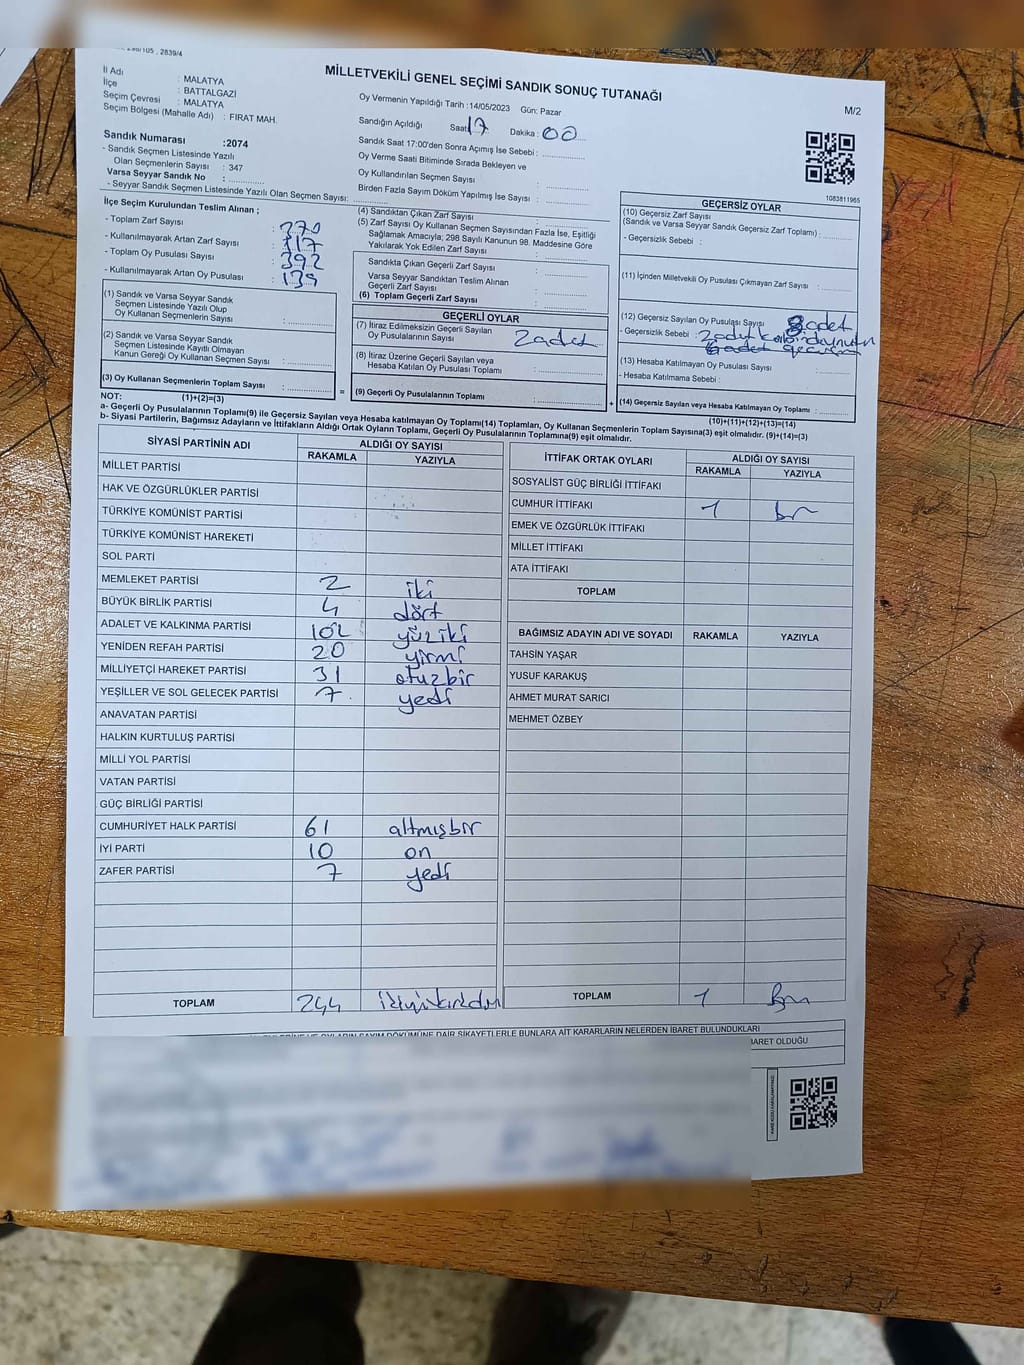 298/105 , 2839/4
MİLLETVEKİLİ GENEL SEÇİMİ SANDIK SONUÇ TUTANAĞI
M/2
İl Adı : MALATYA
İlçe : BATTALGAZİ
Seçim Çevresi : MALATYA
Seçim Bölgesi (Mahalle Adı) : FIRAT MAH.
Sandık Numarası :2074
- Sandık Seçmen Listesinde Yazılı
Olan Seçmenlerin Sayısı : 347
Varsa Seyyar Sandık No :
- Seyyar Sandık Seçmen Listesinde Yazılı Olan Seçmen Sayısı:
Oy Vermenin Yapıldığı Tarih :14/05/2023 Gün: Pazar
Sandığın Açıldığı Saat: 17 Dakika : 00
Sandık Saat 17:00'den Sonra Açımış İse Sebebi :
Oy Verme Saati Bitiminde Sırada Bekleyen ve
Oy Kullandırılan Seçmen Sayısı :
Birden Fazla Sayım Döküm Yapılmış İse Sayısı :
1083811965
İlçe Seçim Kurulundan Teslim Alınan ;
- Toplam Zarf Sayısı : 370
- Kullanılmayarak Artan Zarf Sayısı : 117
- Toplam Oy Pusulası Sayısı : 392
- Kullanılmayarak Artan Oy Pusulası : 139
(1) Sandık ve Varsa Seyyar Sandık
Seçmen Listesinde Yazılı Olup
Oy Kullanan Seçmenlerin Sayısı :
(2) Sandık ve Varsa Seyyar Sandık
Seçmen Listesinde Kayıtlı Olmayan
Kanun Gereği Oy Kullanan Seçmen Sayısı :
(3) Oy Kullanan Seçmenlerin Toplam Sayısı :
(1)+(2)=(3)
(4) Sandıktan Çıkan Zarf Sayısı :
(5) Zarf Sayısı Oy Kullanan Seçmen Sayısından Fazla İse, Eşitliği
Sağlamak Amacıyla; 298 Sayılı Kanunun 98. Maddesine Göre
Yakılarak Yok Edilen Zarf Sayısı :
Sandıkta Çıkan Geçerli Zarf Sayısı :
Varsa Seyyar Sandıktan Teslim Alınan
Geçerli Zarf Sayısı :
(6) Toplam Geçerli Zarf Sayısı :
GEÇERLİ OYLAR
(7) İtiraz Edilmeksizin Geçerli Sayılan
Oy Pusulalarının Sayısı : 2 adet
(8) İtiraz Üzerine Geçerli Sayılan veya
Hesaba Katılan Oy Pusulası Toplamı :
= (9) Geçerli Oy Pusulalarının Toplamı :
GEÇERSİZ OYLAR
(10) Geçersiz Zarf Sayısı
(Sandık ve Varsa Seyyar Sandık Geçersiz Zarf Toplamı) :
- Geçersizlik Sebebi :
(11) İçinden Milletvekili Oy Pusulası Çıkmayan Zarf Sayısı :
(12) Geçersiz Sayılan Oy Pusulası Sayısı : 8 adet
- Geçersizlik Sebebi : 2 adet
adet
(13) Hesaba Katılmayan Oy Pusulası Sayısı :
- Hesaba Katılmama Sebebi :
+ (14) Geçersiz Sayılan veya Hesaba Katılmayan Oy Toplamı :
(10)+(11)+(12)+(13)=(14)
NOT:
a- Geçerli Oy Pusulalarının Toplamı(9) ile Geçersiz Sayılan veya Hesaba katılmayan Oy Toplamı(14) Toplamları, Oy Kullanan Seçmenlerin Toplam Sayısına(3) eşit olmalıdır. (9)+(14)=(3)
b- Siyasi Partilerin, Bağımsız Adayların ve İttifakların Aldığı Ortak Oyların Toplamı, Geçerli Oy Pusulalarının Toplamına(9) eşit olmalıdır.
SİYASİ PARTİNİN ADI ALDIĞI OY SAYISI
RAKAMLA YAZIYLA
MİLLET PARTİSİ
HAK VE ÖZGÜRLÜKLER PARTİSİ
TÜRKİYE KOMÜNİST PARTİSİ
TÜRKİYE KOMÜNİST HAREKETİ
SOL PARTİ
MEMLEKET PARTİSİ 2 iki
BÜYÜK BİRLİK PARTİSİ 4 dört
ADALET VE KALKINMA PARTİSİ 102 yüziki
YENİDEN REFAH PARTİSİ 20 yirmi
MİLLİYETÇİ HAREKET PARTİSİ 31 otuzbir
YEŞİLLER VE SOL GELECEK PARTİSİ 7 yedi
ANAVATAN PARTİSİ
HALKIN KURTULUŞ PARTİSİ
MİLLİ YOL PARTİSİ
VATAN PARTİSİ
GÜÇ BİRLİĞİ PARTİSİ
CUMHURİYET HALK PARTİSİ 61 altmışbir
İYİ PARTİ 10 on
ZAFER PARTİSİ 7 yedi
TOPLAM 244
İTTİFAK ORTAK OYLARI ALDIĞI OY SAYISI
RAKAMLA YAZIYLA
SOSYALİST GÜÇ BİRLİĞİ İTTİFAKI
CUMHUR İTTİFAKI 1 bir
EMEK VE ÖZGÜRLÜK İTTİFAKI
MİLLET İTTİFAKI
ATA İTTİFAKI
TOPLAM
BAĞIMSIZ ADAYIN ADI VE SOYADI RAKAMLA YAZIYLA
TAHSİN YAŞAR
YUSUF KARAKUŞ
AHMET MURAT SARICI
MEHMET ÖZBEY
TOPLAM 1 Bir
OYLARIN SAYIM DÖKÜMÜNE DAİR ŞİKAYETLERLE BUNLARA AİT KARARLARIN NELERDEN İBARET BULUNDUKLARI
İBARET OLDUĞU